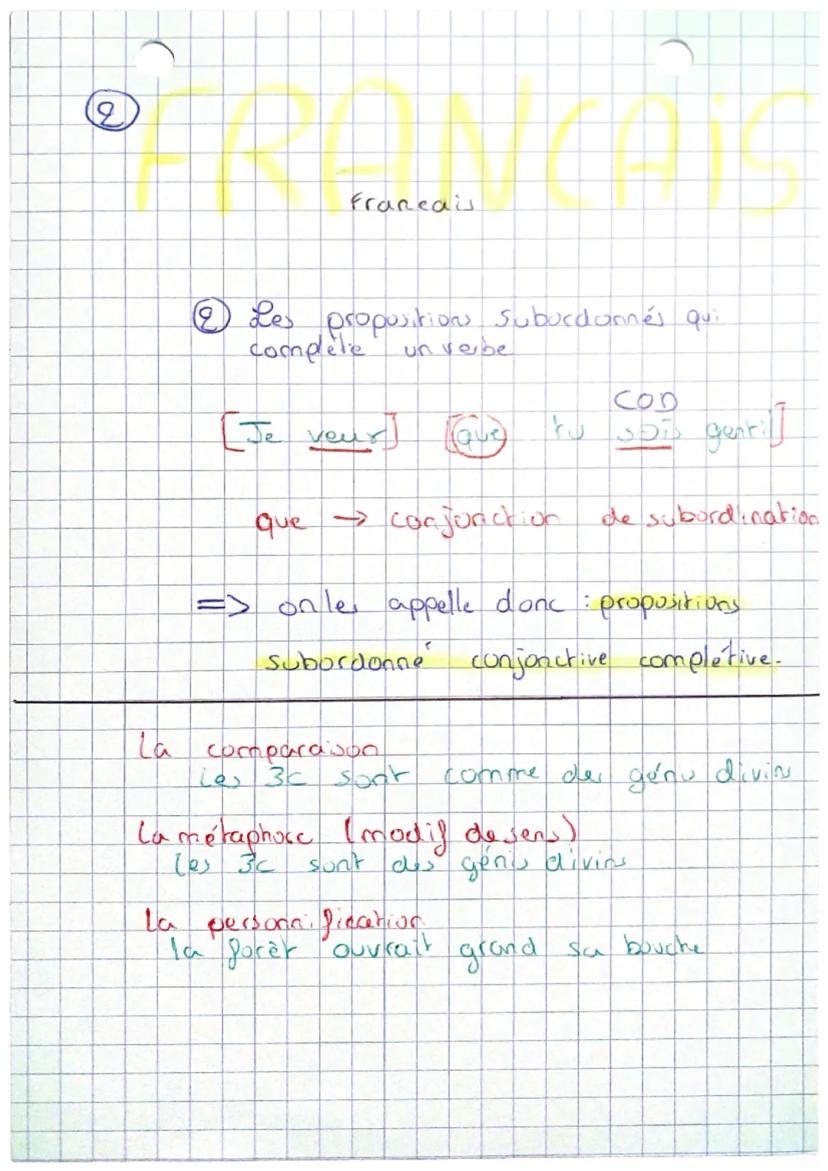 2 FRANCAiS
Francais
2 Les proposition subordonnés qui
complète un verbe
COD
[Je veux] [que tu sois gentil]
que → conjonction de subordination
=> on les appelle donc : propositions
subordonné conjonctive complétive.
La comparaison
Les 3c sont comme des génis divins
La métaphore (modif de sens)
les 3c sont des génis divins
La personnification
la forêt ouvrait grand sa bouche